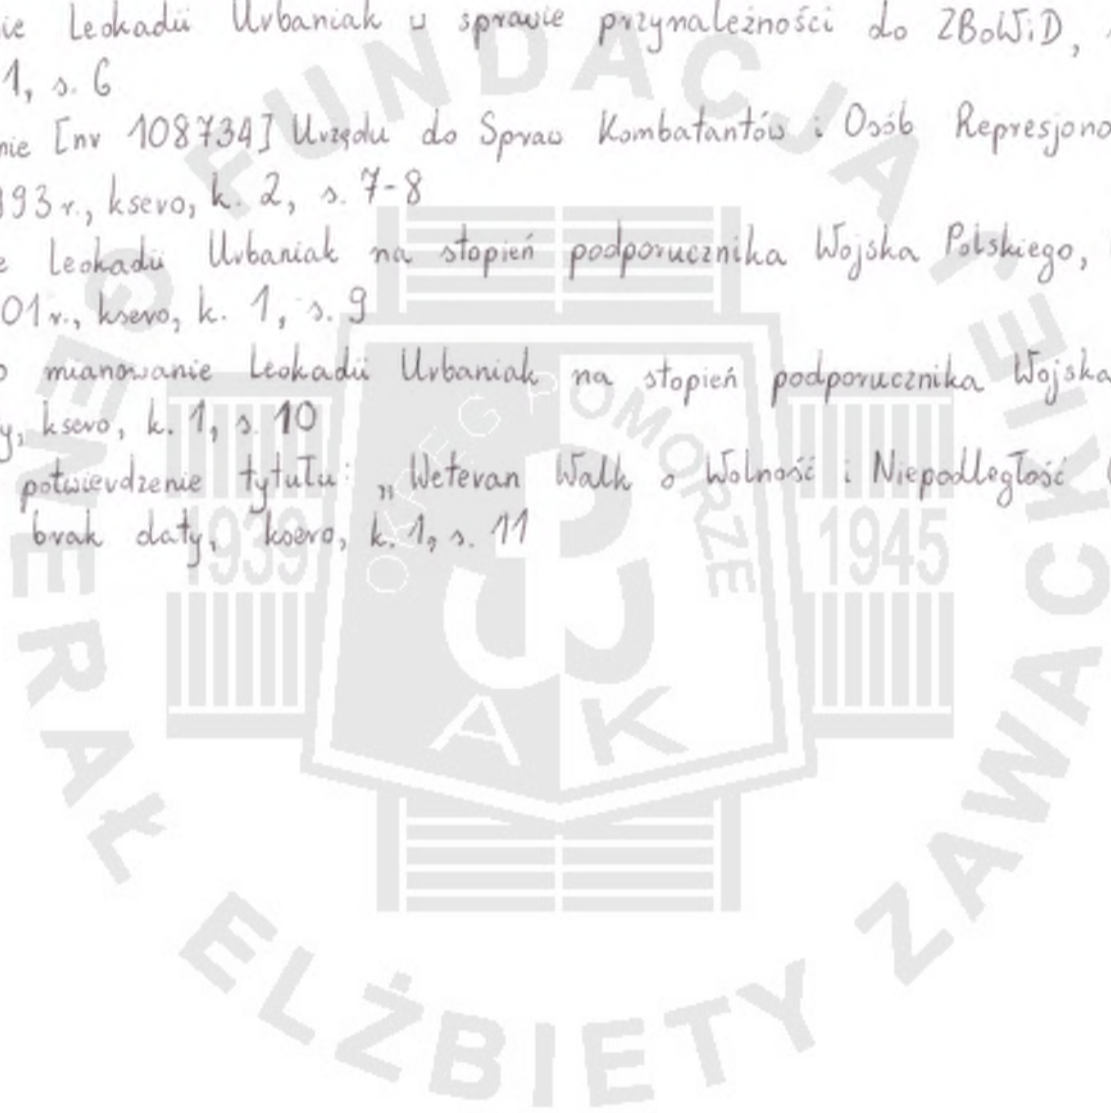 ie Leokadii Urbaniak w sprawie przynależności do ZBoWiD,
1, s. 6
nie [nr 108734] Urzędu do Spraw Kombatantów i Osób Represjono
993 r., ksero, k. 2, s. 7-8
e Leokadii Urbaniak na stopień podporucznika Wojska Polskiego,
01 r., ksero, k. 1, s. 9
o mianowanie Leokadii Urbaniak na stopień podporucznika Wojska
y, ksero, k. 1, s. 10
potwierdzenie tytułu: „Weteran Walk o Wolność i Niepodległość
brak daty, ksero, k. 1, s. 11
FUNDACJA
GENERAŁ ELŻBIETY ZAWACKIEJ
OKRĘG POMORZE
1939
1945
A K